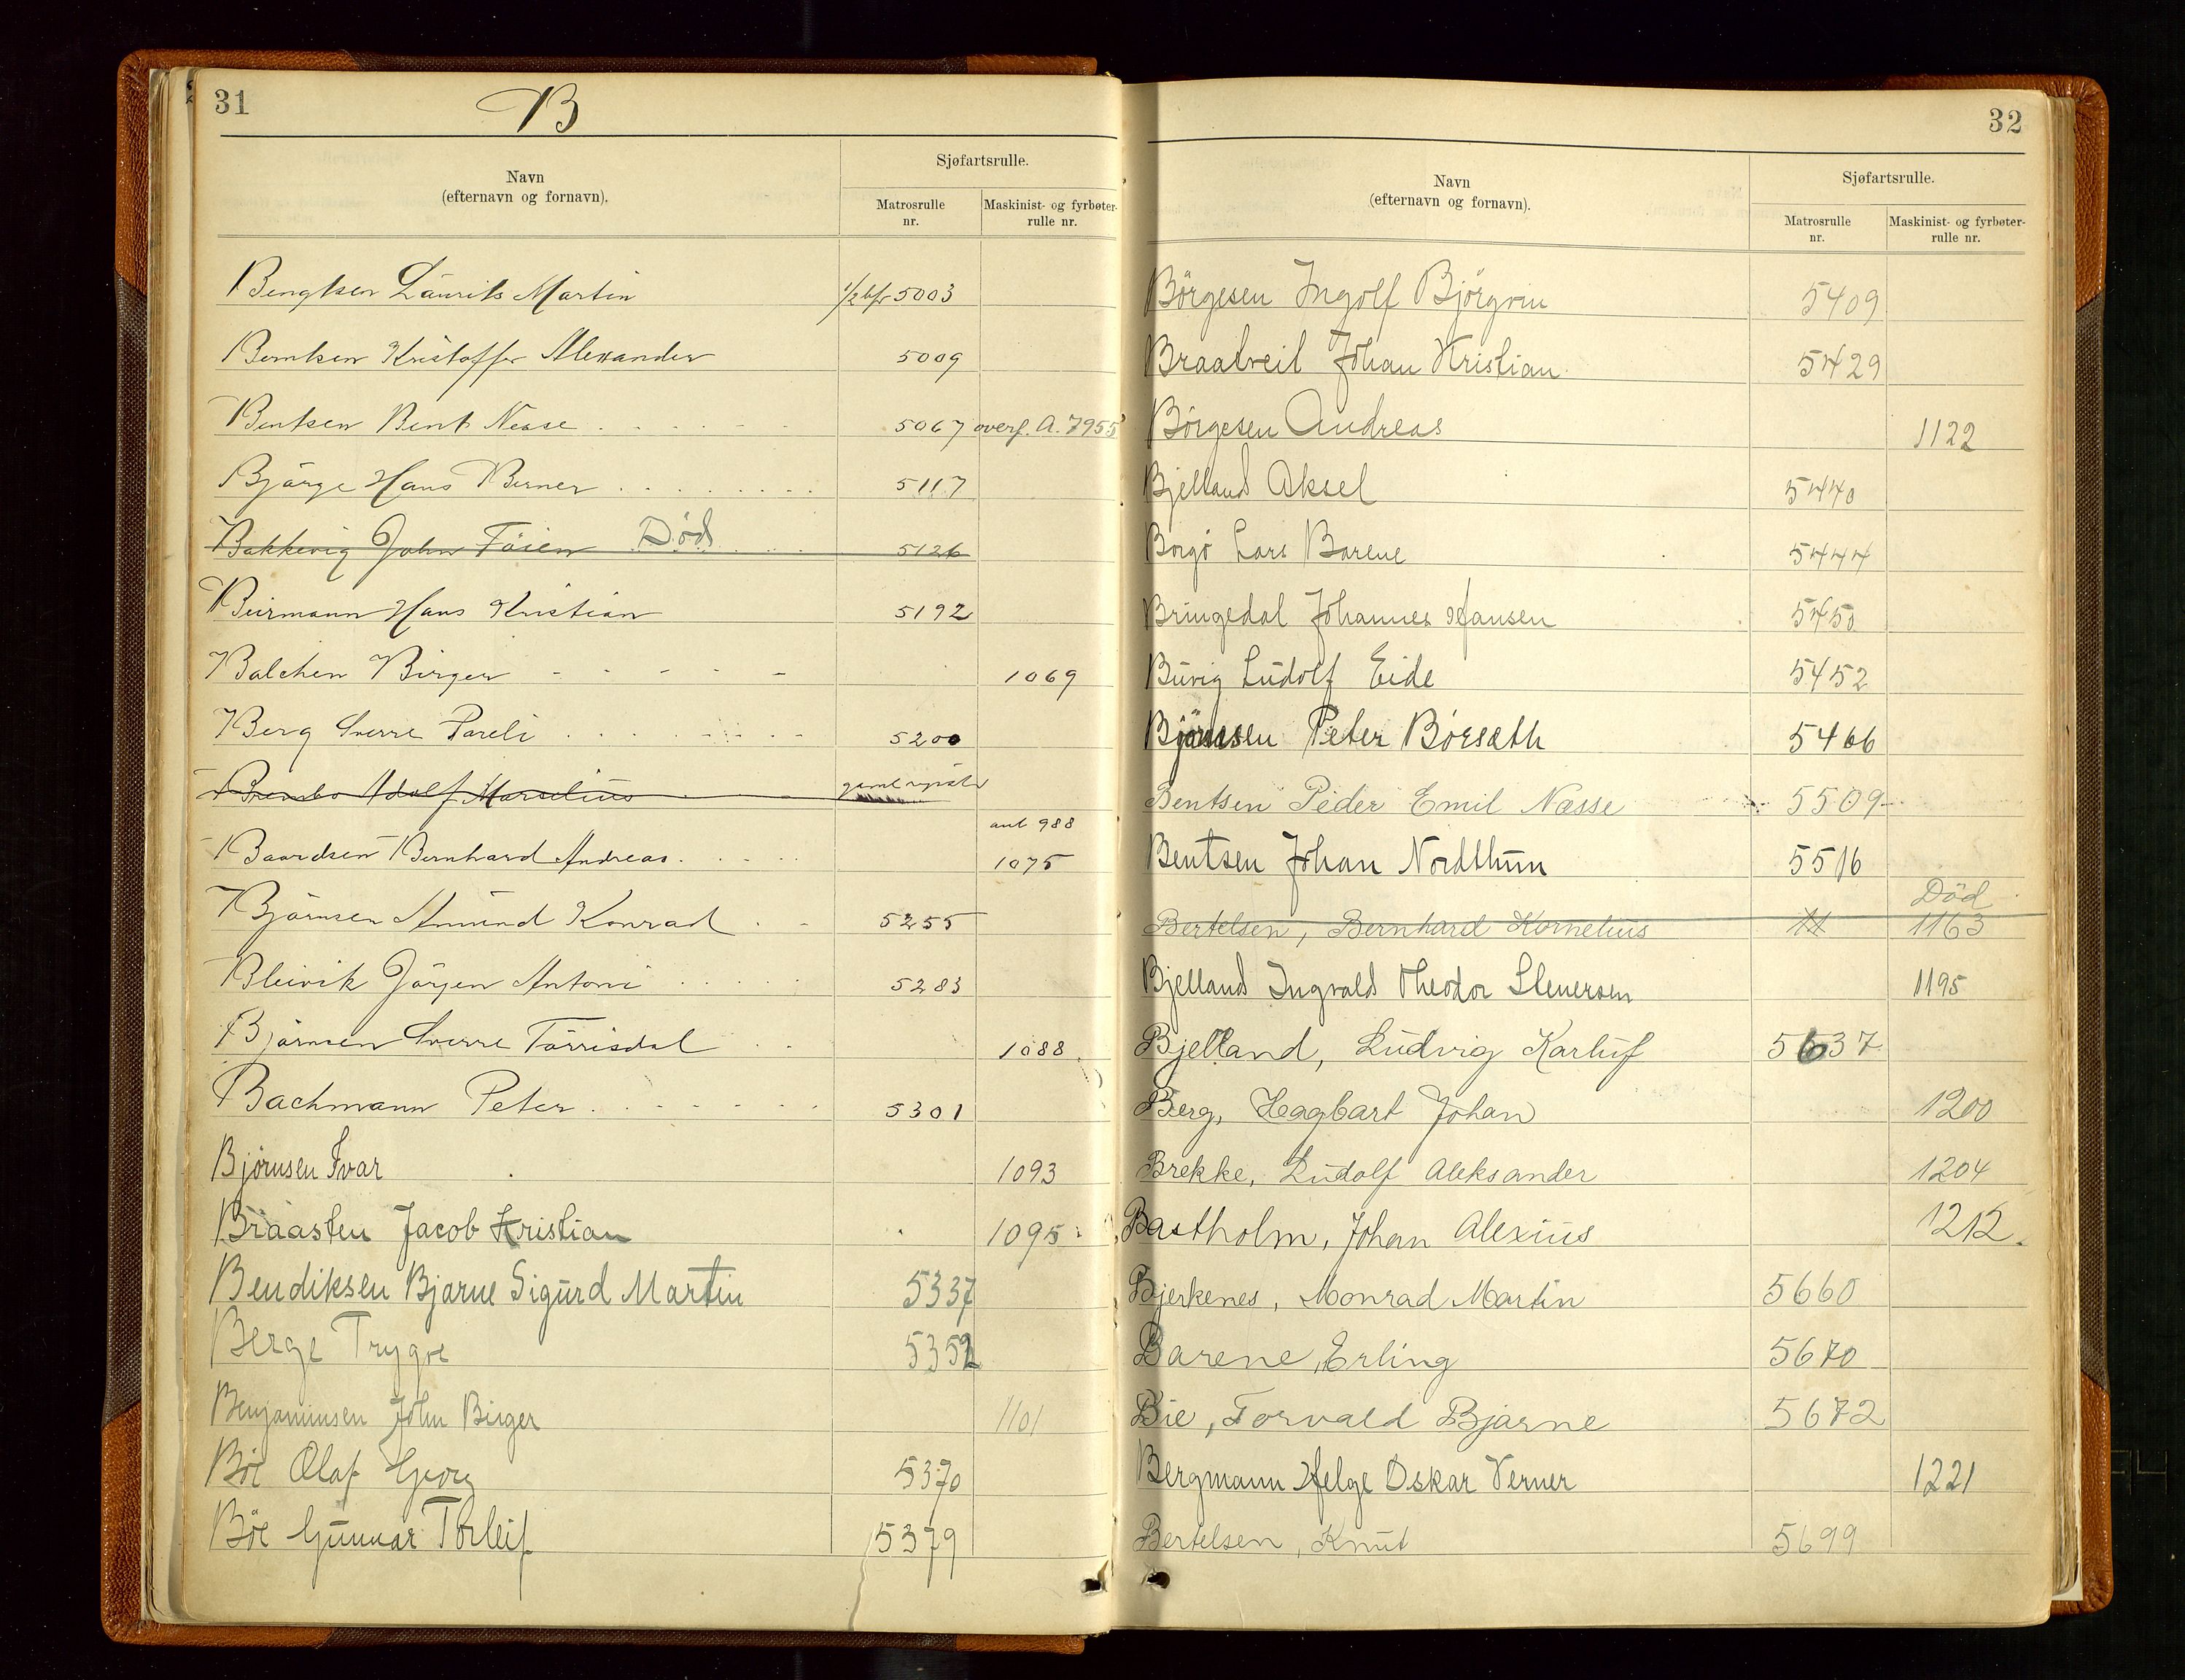 31
B
Navn
(efternavn og fornavn).
Sjøfartsrulle.
Matrosrulle
nr.
Maskinist- og fyrbøter-
rulle nr.
Bengtsen Laurits Martin 5003
Berntsen Kristoffer Alexander 5009
Bentsen Bent Nesse 5067 overf. A. 7955
Bjørge Hans Berner 5117
Bakkevig John Føien Død 5126
Beirmann Hans Kristian 5192
Balchen Birger 1069
Berg Sverre Pareli 5200
Brembo Adolf Marselius
ant 988
Baardsen Bernhard Andreas 1075
Björnsen Amund Konrad 5255
Bleivik Jörgen Antoni 5283
Björnsen Sverre Törrisdal 1088
Bachmann Peter 5301
Bjørnsen Ivar 1093
Braasten Jacob Kristian 1095
Bendiksen Bjarne Sigurd Martin 5337
Berge Trygve 5352
Benjaminsen John Birger 1101
Böe Olaf Georg 5370
Böe Gunnar Torleif 5379
32
Navn
(efternavn og fornavn).
Sjøfartsrulle.
Matrosrulle
nr.
Maskinist- og fyrbøter-
rulle nr.
Börgesen Ingolf Björgvin 5409
Braatveit Johan Kristian 5429
Börgesen Andreas 1122
Bjelland Aksel 5440
Borgö Lars Barene 5444
Bringedal Johannes Hansen 5450
Buvig Ludolf Eide 5452
Björnsen Peter Börseth 5466
Bentsen Peder Emil Næsse 5509
Bentsen Johan Nordthun 5516
Död
Bertelsen, Bernhard Kornelius 1163
Bjelland Ingvald Theodor Stenersen 1195
Bjelland, Ludvig Karluf 5637
Berg, Hagbart Johan 1200
Brekke, Ludolf Aleksander 1204
Bastholm, Johan Alexius 1212.
Bjerkenes, Monrad Martin 5660
Barene, Erling 5670
Bie, Torvald Bjarne 5672
Bergmann Helge Oskar Verner 1221
Bertelsen, Knut 5699